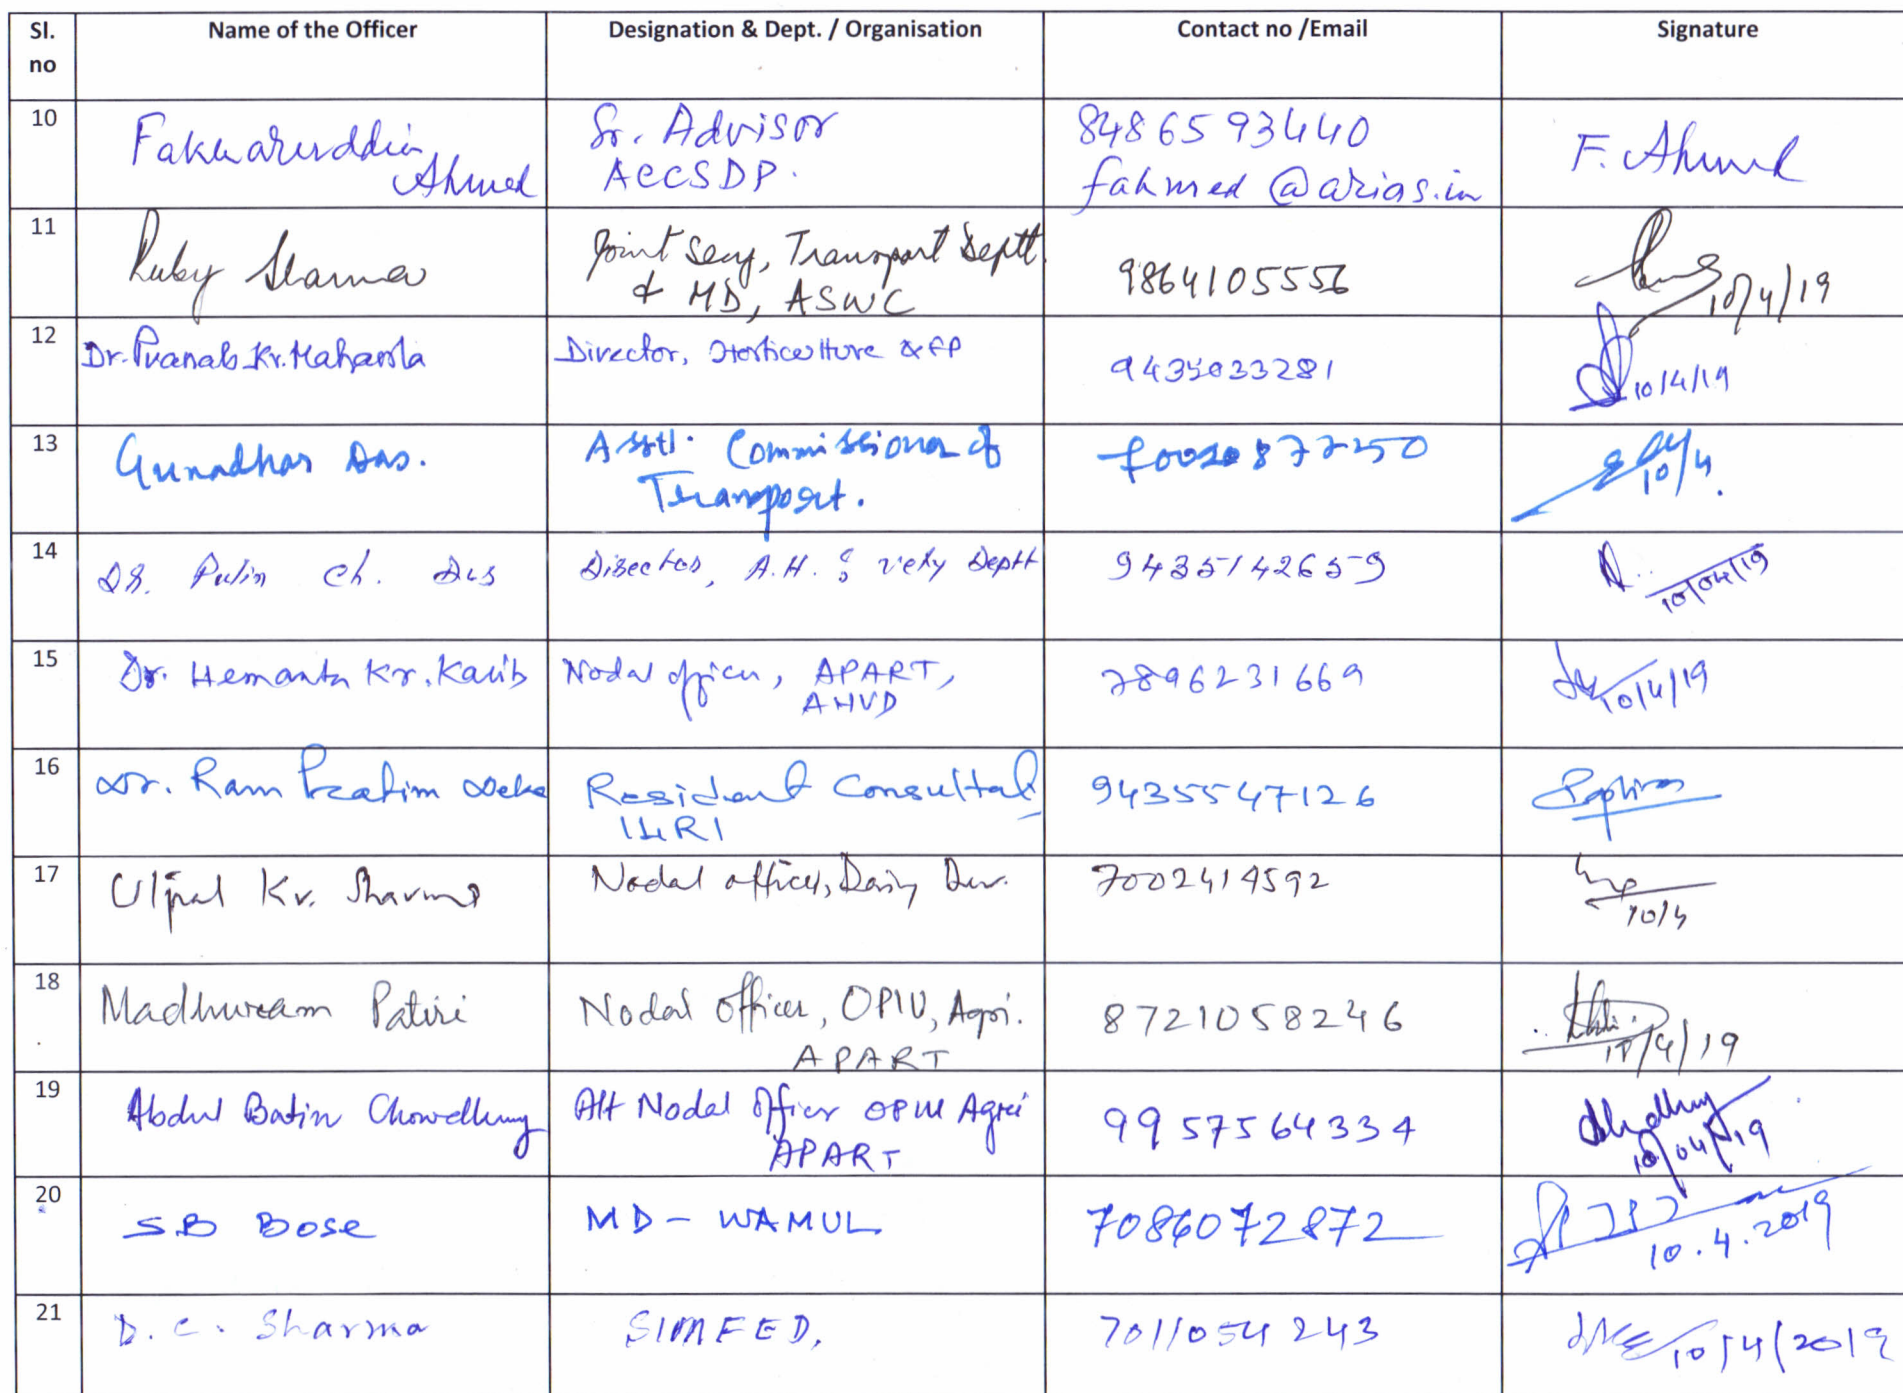 Sl. no Name of the Officer Designation & Dept. / Organisation Contact no /Email Signature
10 Fakharuddin Ahmed Sr. Advisor ACCSDP. 8486593440 fahmed@arias.in F. Ahmed
11 Ruby Sharma Joint Secy, Transport Deptt. & MD, ASWC 9864105556 10/4/19
12 Dr. Pranab Kr. Director, Horticulture & FP 9435033281 10/4/19
13 Gunadhar Das. Asstt. Commissioner of Transport. 10/4.
14 Dr. Pulin Ch. Das Director, A.H. & vety Deptt 9435142659 10/04/19
15 Dr. Hemanta Kr. Nodal officer, APART, AHVD 7896231669 10/4/19
16 Dr. Ram Pratim Deka Resident Consultant ILRI 9435547126
17 Utpal Kr. Sharma Nodal officer, Dairy Dev. 7002414592 10/4
18 Madhuram Patiri Nodal Officer, OPIU, Agri. APART 8721058246 10/4/19
19 Abdul Batin Chowdhury Alt Nodal Officer OPIU Agri APART 9957564334 10/04/19
20 S.B Bose MD - WAMUL 7086072872 10.4.2019
21 D.C. Sharma SIMFED, 7011054243 10/4/2019